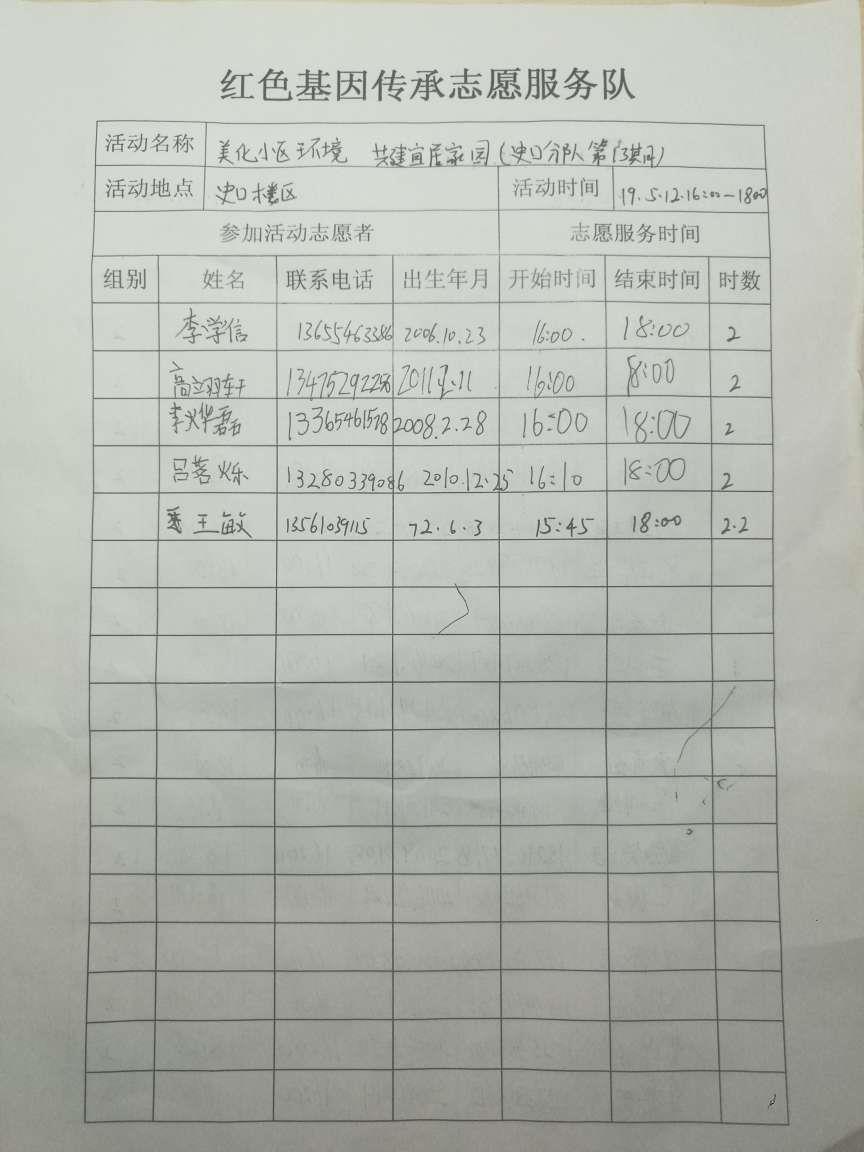 红色基因传承志愿服务队
活动名称 美化小区环境 共建宜居家园(史口分队第13期)
活动地点 史口楼区 活动时间 19.5.12.16:00-18:00
参加活动志愿者 志愿服务时间
组别 姓名 联系电话 出生年月 开始时间 结束时间 时数
李学信 13655463386 2006.10.23 16:00. 18:00 2
高立羽轩 13475292256 16:00 18:00 2
李烨磊 13365461578 2008.2.28 16:00 18:00 2
吕茗烁 13280339086 2010.12.25 16:10 18:00 2
王敏 13561039115 72.6.3 15:45 18:00 2.2